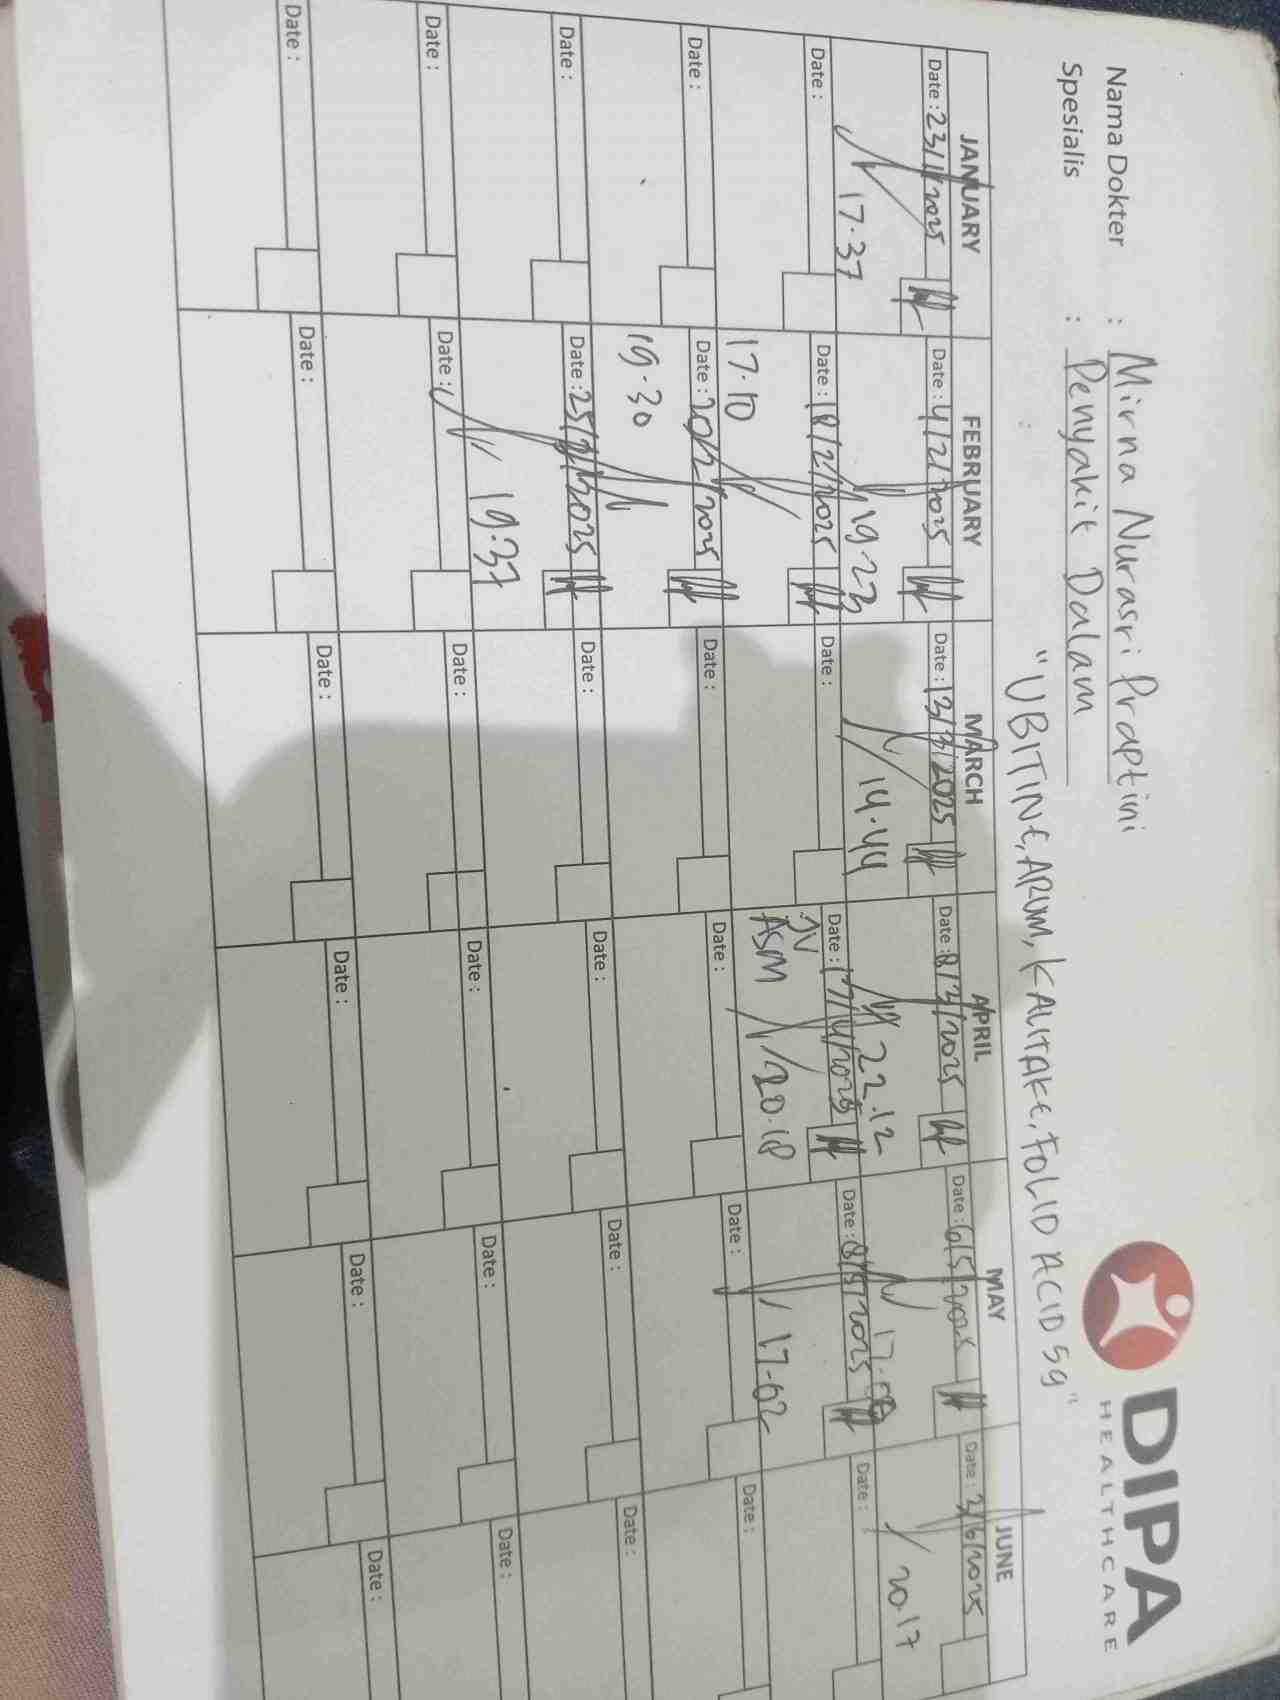 DIPA
HEALTHCARE
Nama Dokter : Mirna Nurasri Praptini
Spesialis : Penyakit Dalam
"UBITINE, ARUM, KALITAKE, FOLID ACID 5g"
JANUARY FEBRUARY MARCH APRIL MAY JUNE
Date : 23/1/2025 Date : 4/2/2025 Date : 13/3/2025 Date : 8/3/2025 Date : 6/5/2025 Date : 3/6/2025
17.37 19.23 14.44 22.12 17.08 20.17
Date : Date : 18/2/2025 Date : Date : 17/4/2025 Date : 8/5/2025 Date :
17.10 JV
ASM 20.18 17-02
Date : Date : 20/2/2025 Date : Date : Date : Date :
19.30
Date : Date : 25/2/2025 Date : Date : Date : Date :
19.37
Date : Date : Date : Date : Date : Date :
Date : Date : Date : Date : Date : Date :